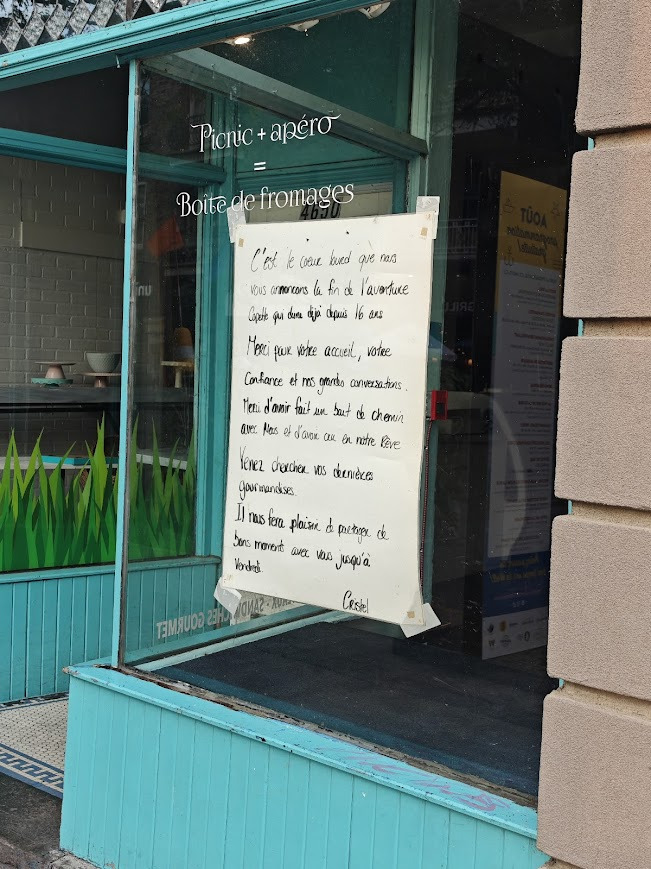 Picnic + apéro
=
Boîte de fromages
4650
C'est le coeur lourd que nous
vous annoncons la fin de l'aventure
qui dure déjà depuis 16 ans
Merci pour votre accueil, votre
confiance et nos grandes conversations.
Merci d'avoir fait un bout de chemin
avec Nous et d'avoir cru en notre Rêve
Venez chercher vos dernières
gourmandises.
Il nous fera plaisir de partager de
bons moments avec vous jusqu'à
Vendredi.
Cristel
AOÛT
programmation
SANDWICHES GOURMET